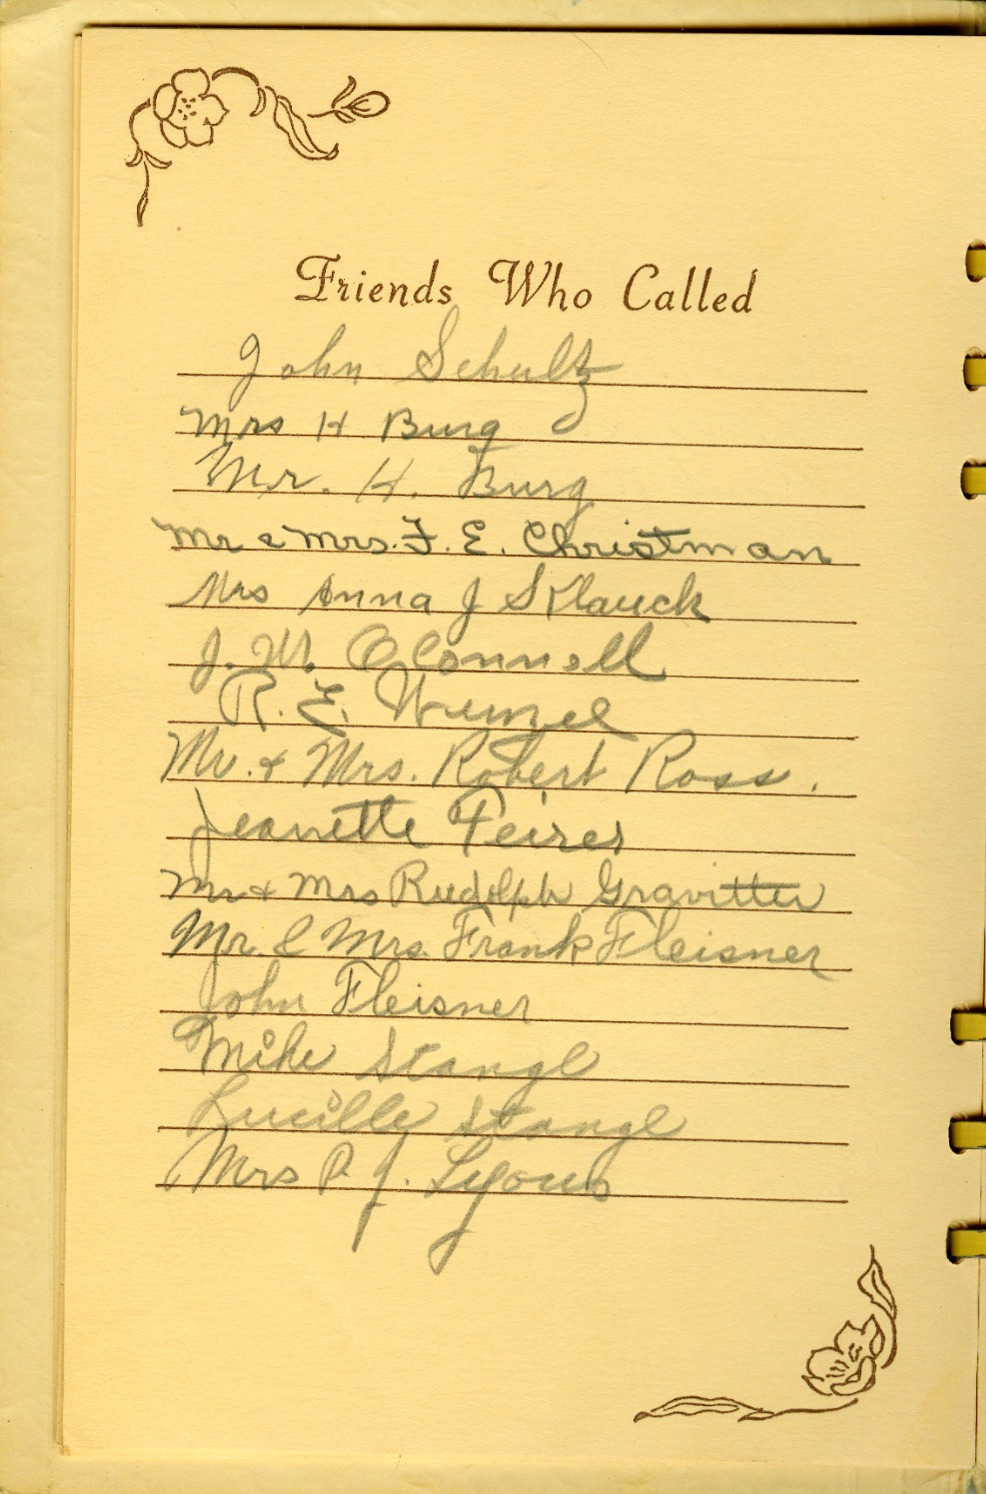 Friends Who Called
John Schultz
Mrs H Burg
Mr. H. Burg
Mr & Mrs. F. E. Christman
Mrs Anna J Sklauck
J. M. O'Connell
R. E.
Mr. & Mrs. Robert Ross.
Jeanette Feirer
Mr & Mrs Rudolph Gravitter
Mr. & Mrs. Frank Fleisner
John Fleisner
Mike Stangl
Lucille Stangl
Mrs P. J. Lyons